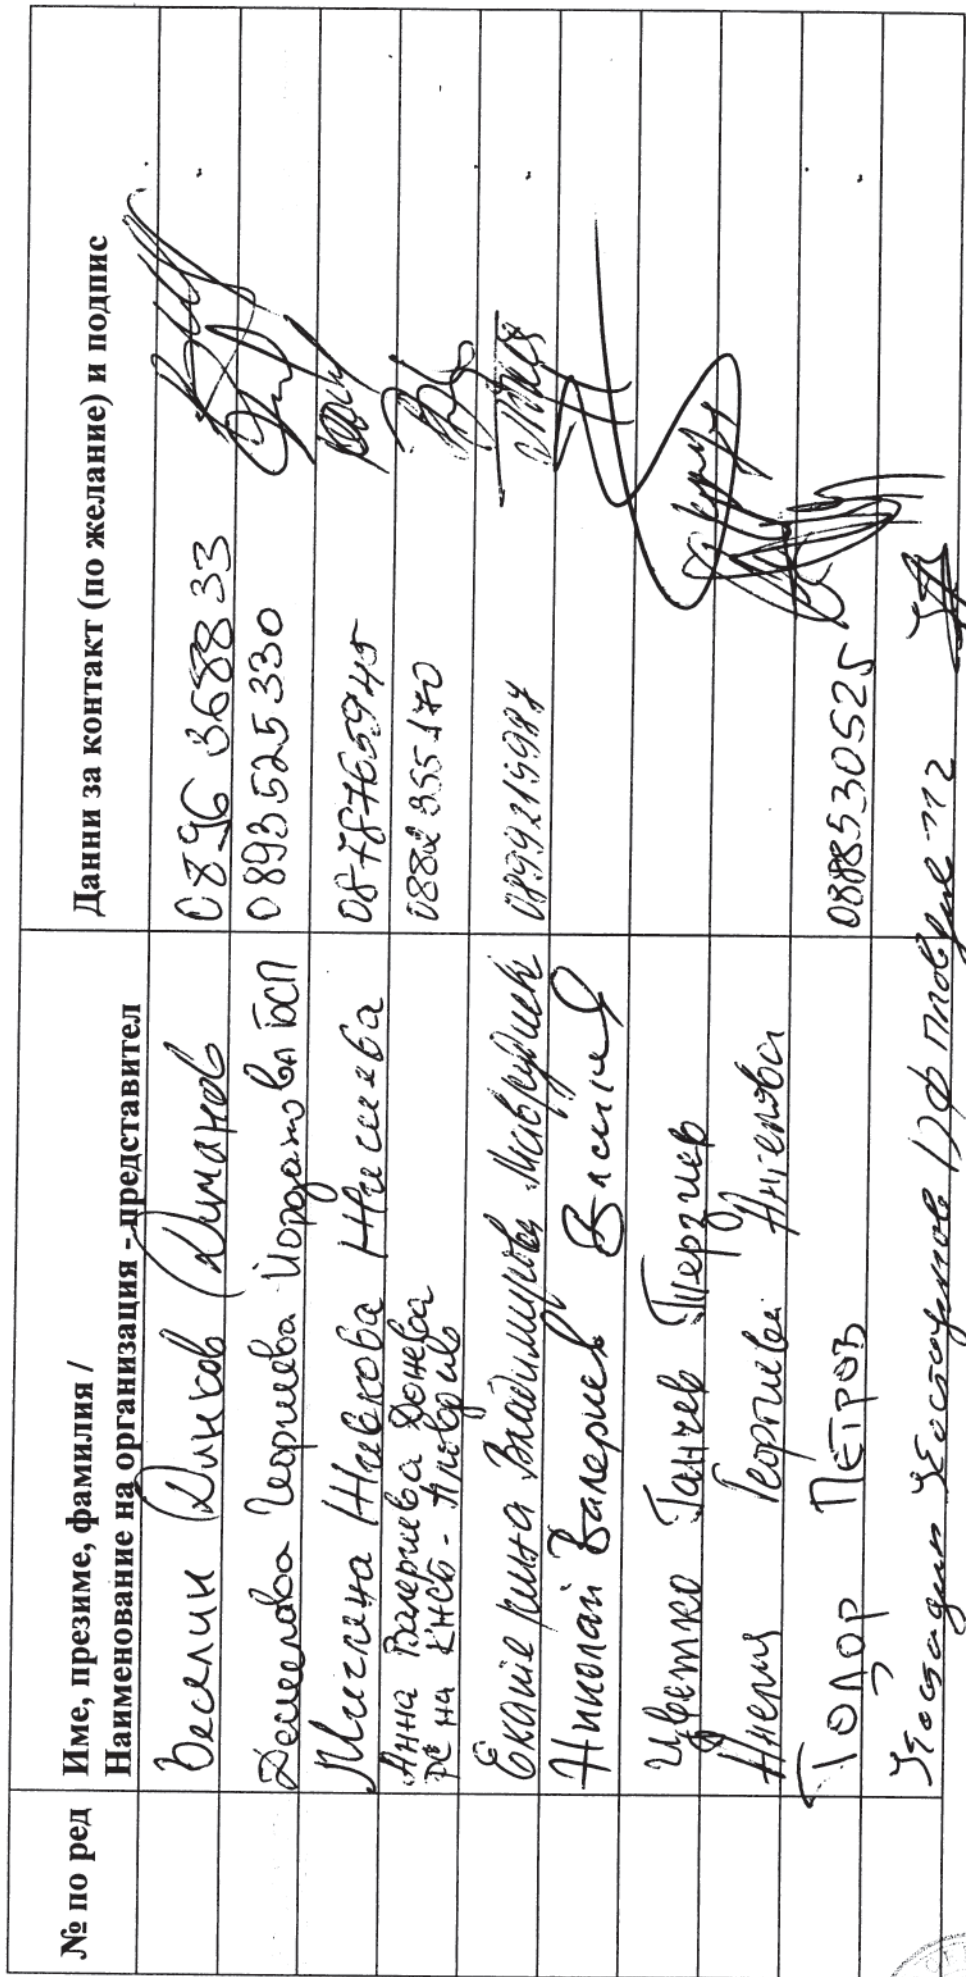 № по ред
Име, презиме, фамилия /
Наименование на организация - представител
Данни за контакт (по желание) и подпис
Веселин Динков Диманов
0896 3688 33
Десислава Георгиева Йорданова БСП
0893525330
Миглена Живкова
0878765945
Анна Валериева Донева
РС на КНСБ - Пловдив
0882 355 170
Екатерина Владимирова
0899219987
Николай Валериев
Цветко Танчев Терзиев
Анелия Георгиева Ангелова
Тодор Петров
0888530525
Костадин Костадинов ДФ Пловдив 112